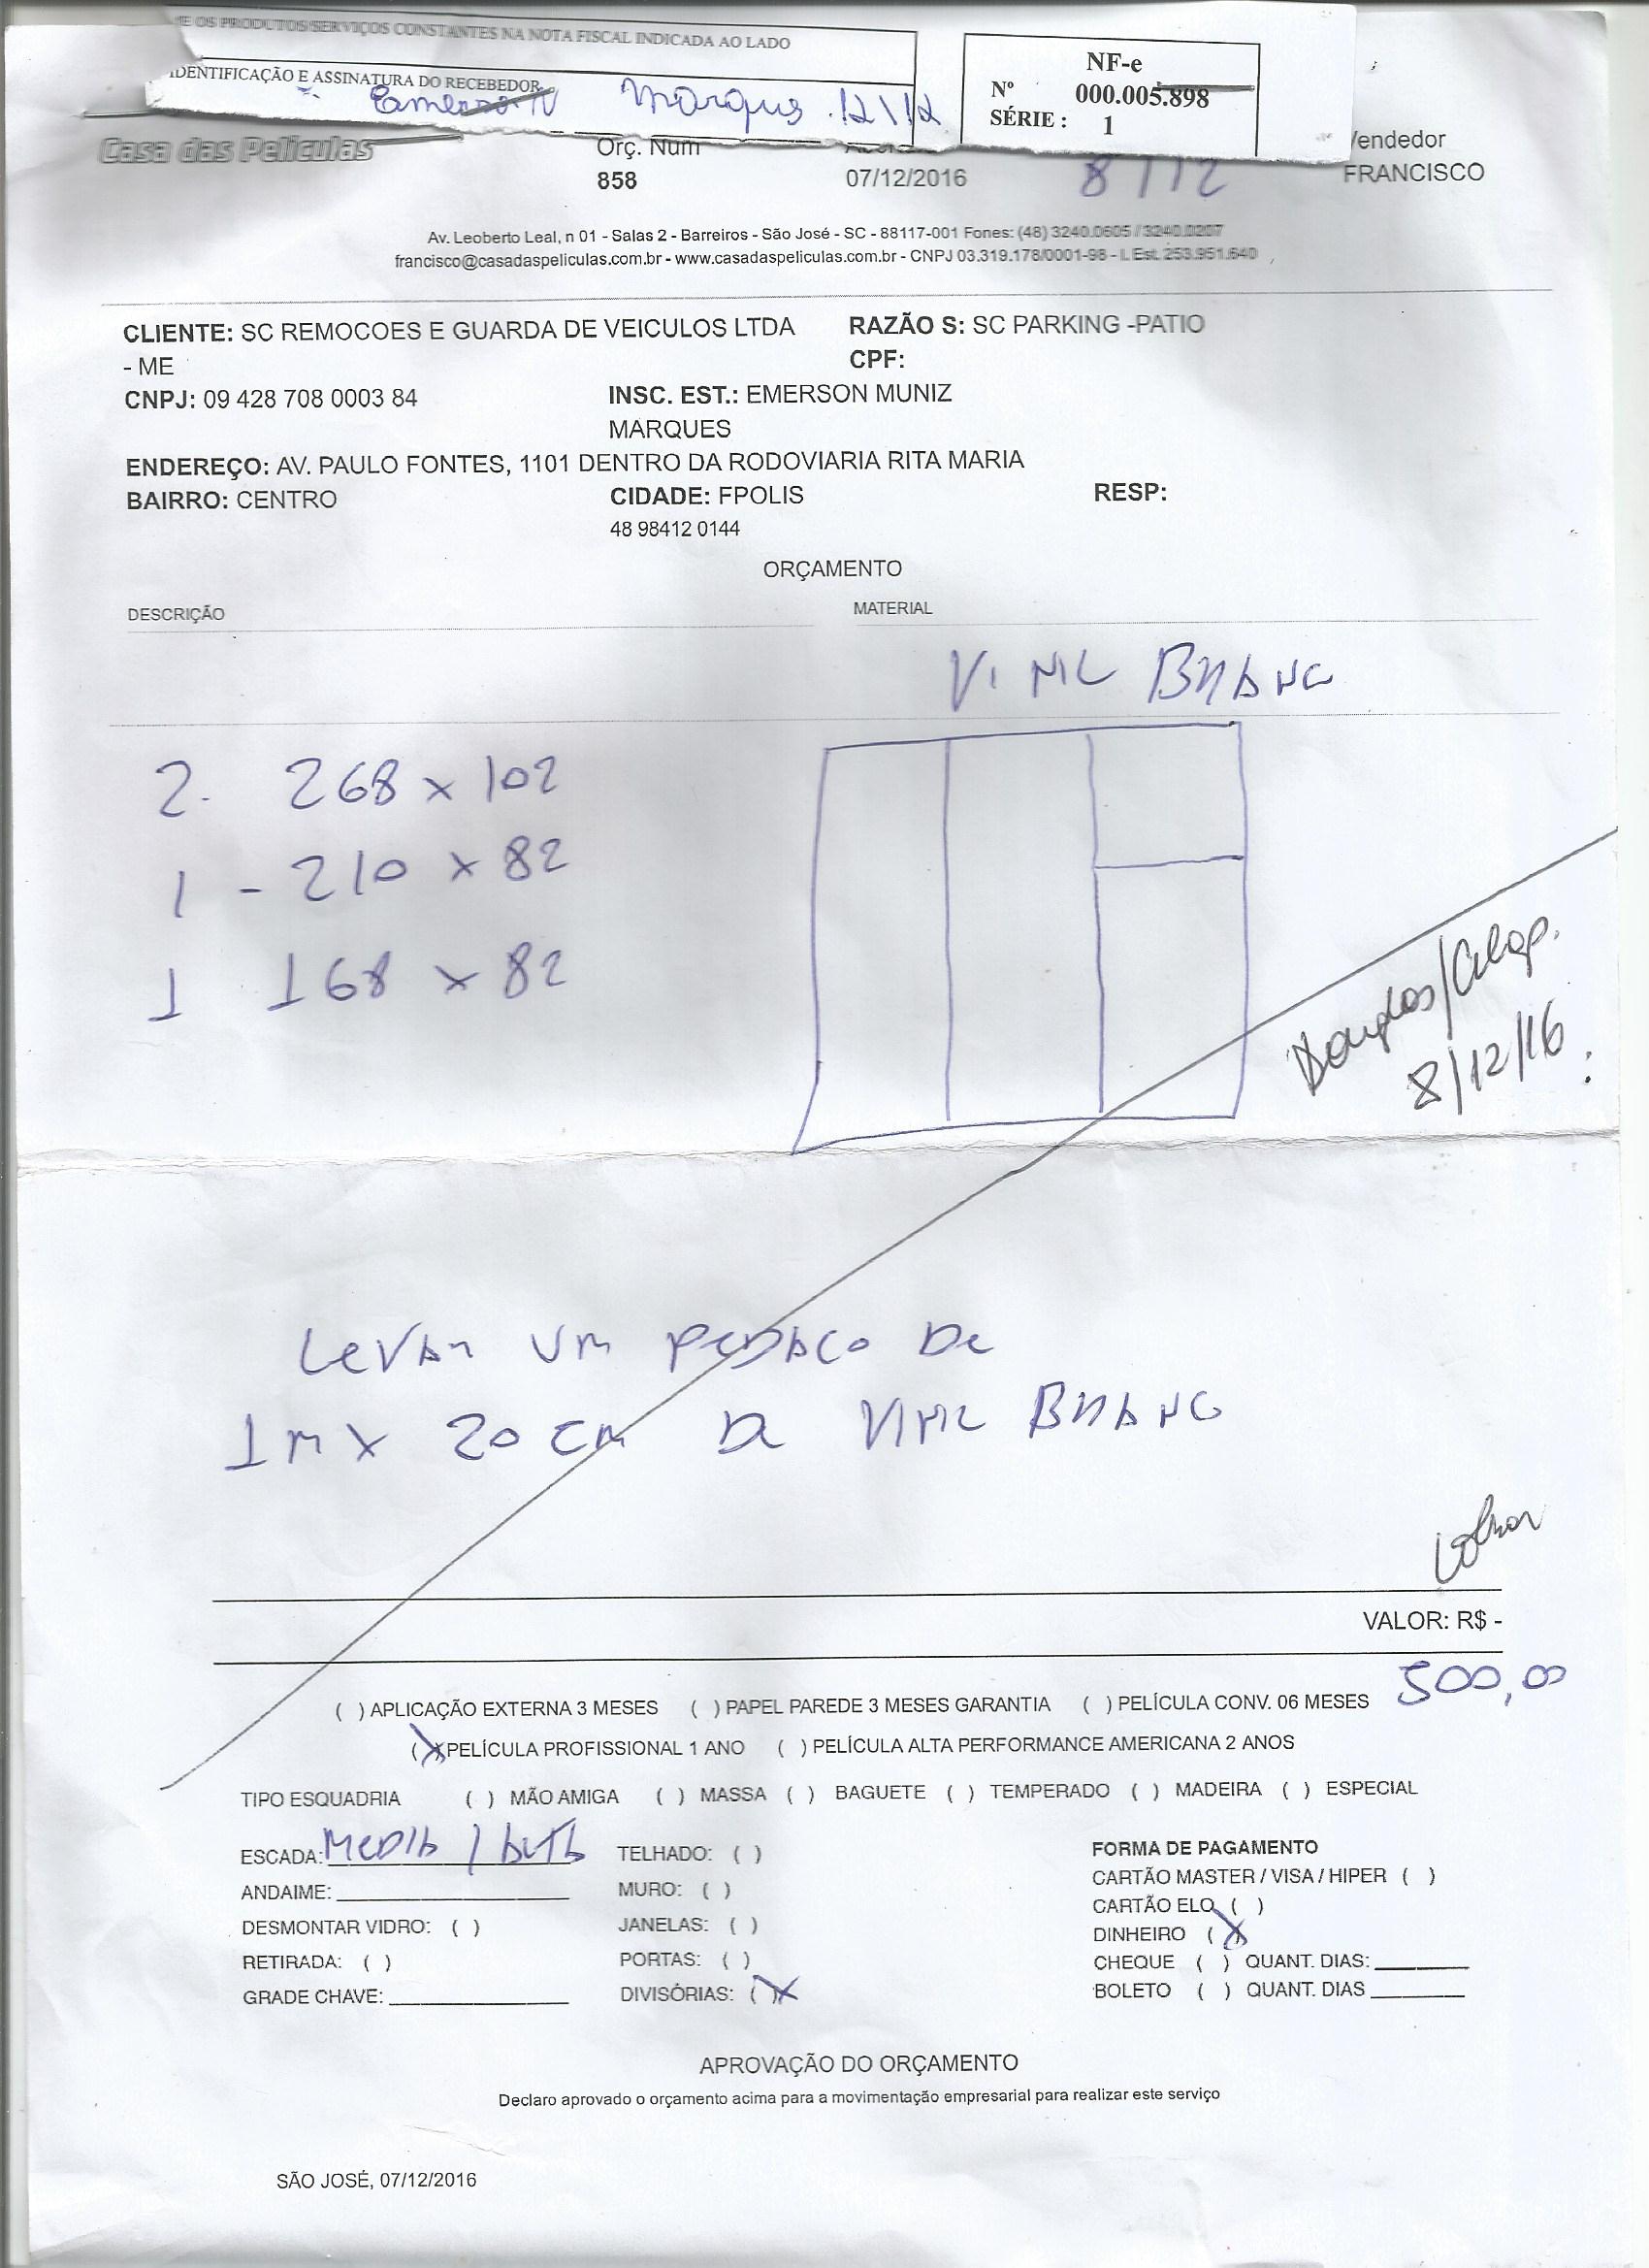 E OS PRODUTOS/SERVIÇOS CONSTANTES NA NOTA FISCAL INDICADA AO LADO
IDENTIFICAÇÃO E ASSINATURA DO RECEBEDOR
Marques 12/12
NF-e
Nº 000.005.898
SÉRIE: 1
Casa das Películas
Orç. Num
858
07/12/2016
8/12
Vendedor
FRANCISCO
Av. Leoberto Leal, n 01 - Salas 2 - Barreiros - São José - SC - 88117-001 Fones: (48) 3240.0605 / 3240.0207
francisco@casadaspeliculas.com.br - www.casadaspeliculas.com.br - CNPJ 03.319.178/0001-98 - I. Est. 253.951.640
CLIENTE: SC REMOCOES E GUARDA DE VEICULOS LTDA - ME
RAZÃO S: SC PARKING -PATIO
CPF:
CNPJ: 09 428 708 0003 84
INSC. EST.: EMERSON MUNIZ MARQUES
ENDEREÇO: AV. PAULO FONTES, 1101 DENTRO DA RODOVIARIA RITA MARIA
BAIRRO: CENTRO CIDADE: FPOLIS RESP:
48 98412 0144
ORÇAMENTO
DESCRIÇÃO MATERIAL
VINIL BRANC
2. 268 x 102
1 - 210 x 82
1 168 x 82
Douglas/
8/12/16
LEVAR UM PEDACO DE
1 M X 20 CM DE VINIL BRANC
VALOR: R$ -
500,00
( ) APLICAÇÃO EXTERNA 3 MESES ( ) PAPEL PAREDE 3 MESES GARANTIA ( ) PELÍCULA CONV. 06 MESES
(X) PELÍCULA PROFISSIONAL 1 ANO ( ) PELÍCULA ALTA PERFORMANCE AMERICANA 2 ANOS
TIPO ESQUADRIA ( ) MÃO AMIGA ( ) MASSA ( ) BAGUETE ( ) TEMPERADO ( ) MADEIRA ( ) ESPECIAL
ESCADA: MEDIA / ALTA
ANDAIME:
DESMONTAR VIDRO: ( )
RETIRADA: ( )
GRADE CHAVE:
TELHADO: ( )
MURO: ( )
JANELAS: ( )
PORTAS: ( )
DIVISÓRIAS: (X)
FORMA DE PAGAMENTO
CARTÃO MASTER / VISA / HIPER ( )
CARTÃO ELO ( )
DINHEIRO (X)
CHEQUE ( ) QUANT. DIAS:
BOLETO ( ) QUANT. DIAS
APROVAÇÃO DO ORÇAMENTO
Declaro aprovado o orçamento acima para a movimentação empresarial para realizar este serviço
SÃO JOSÉ, 07/12/2016